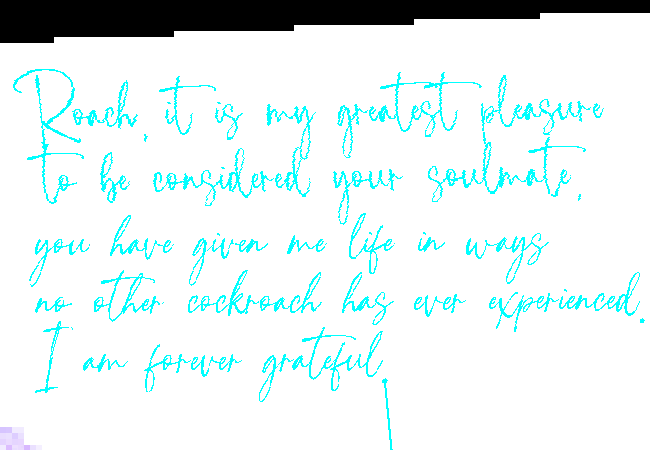 Roach, it is my greatest pleasure
to be considered your soulmate,
you have given me life in ways
no other cockroach has ever experienced.
I am forever grateful.